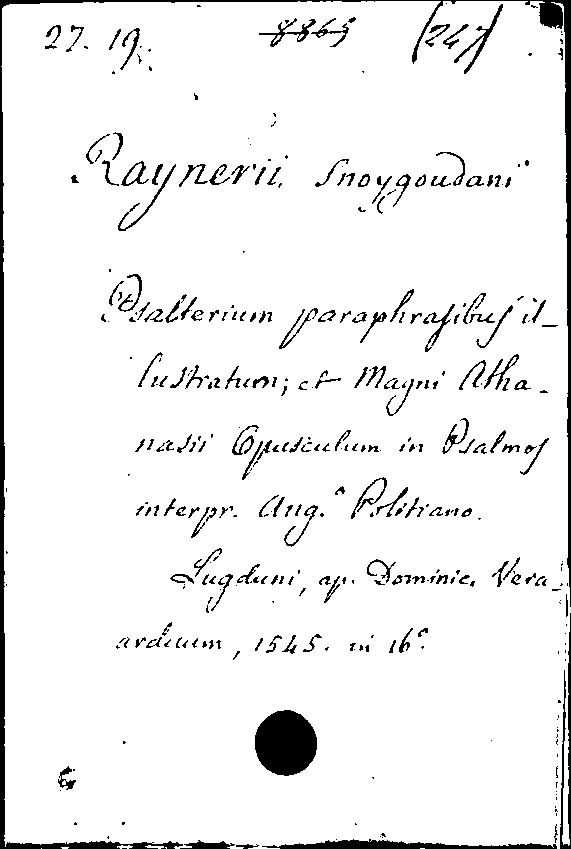 27. 19. 8865 (247)
Raynerii Snoygoudani
Psalterium paraphrasibus il-
lustratum; et Magni Atha-
nasii Opusculum in Psalmos
interpr. Ang.º Politiano.
Lugduni, ap. Dominic. Vera-
ardum, 1545. in 16º.